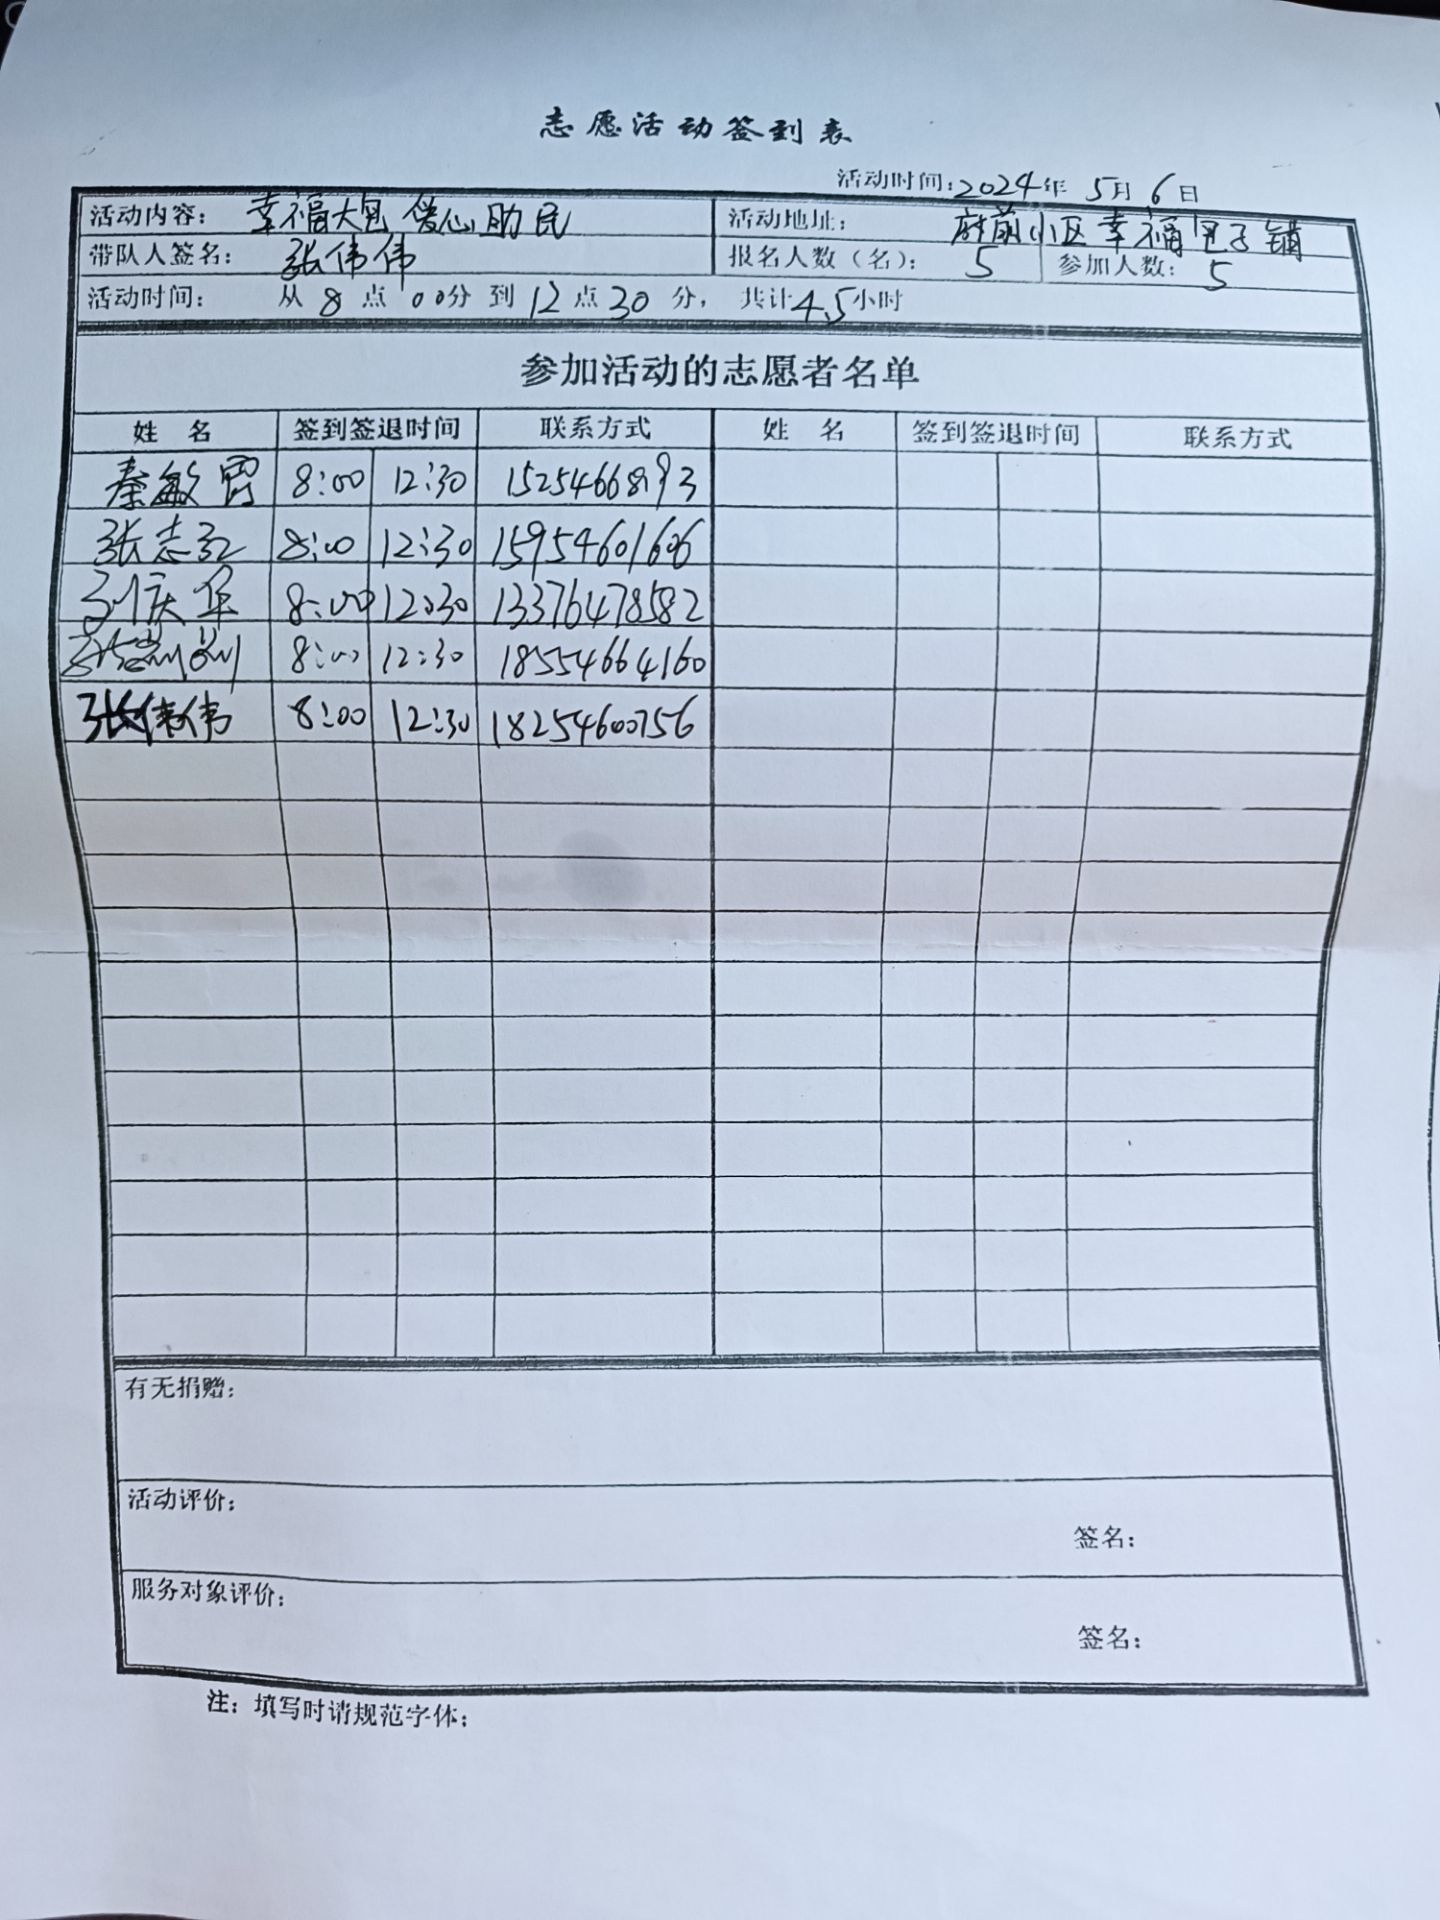 志愿活动签到表
活动时间：2024年 5月 6日
活动内容： 幸福大包 爱心助民 活动地址： 府前小区幸福包子铺
带队人签名： 张伟伟 报名人数（名）： 5 参加人数： 5
活动时间： 从 8 点 00分 到 12 点 30 分， 共计4.5小时
参加活动的志愿者名单
姓 名 签到签退时间 联系方式 姓 名 签到签退时间 联系方式
秦敏霄 8:00 12:30 15254668193
张志红 8:00 12:30 15954601606
刘庆华 8:00 12:30 13376478582
8:00 12:30 18554664160
张伟伟 8:00 12:30 18254600756
有无捐赠：
活动评价：
签名：
服务对象评价：
签名：
注：填写时请规范字体；